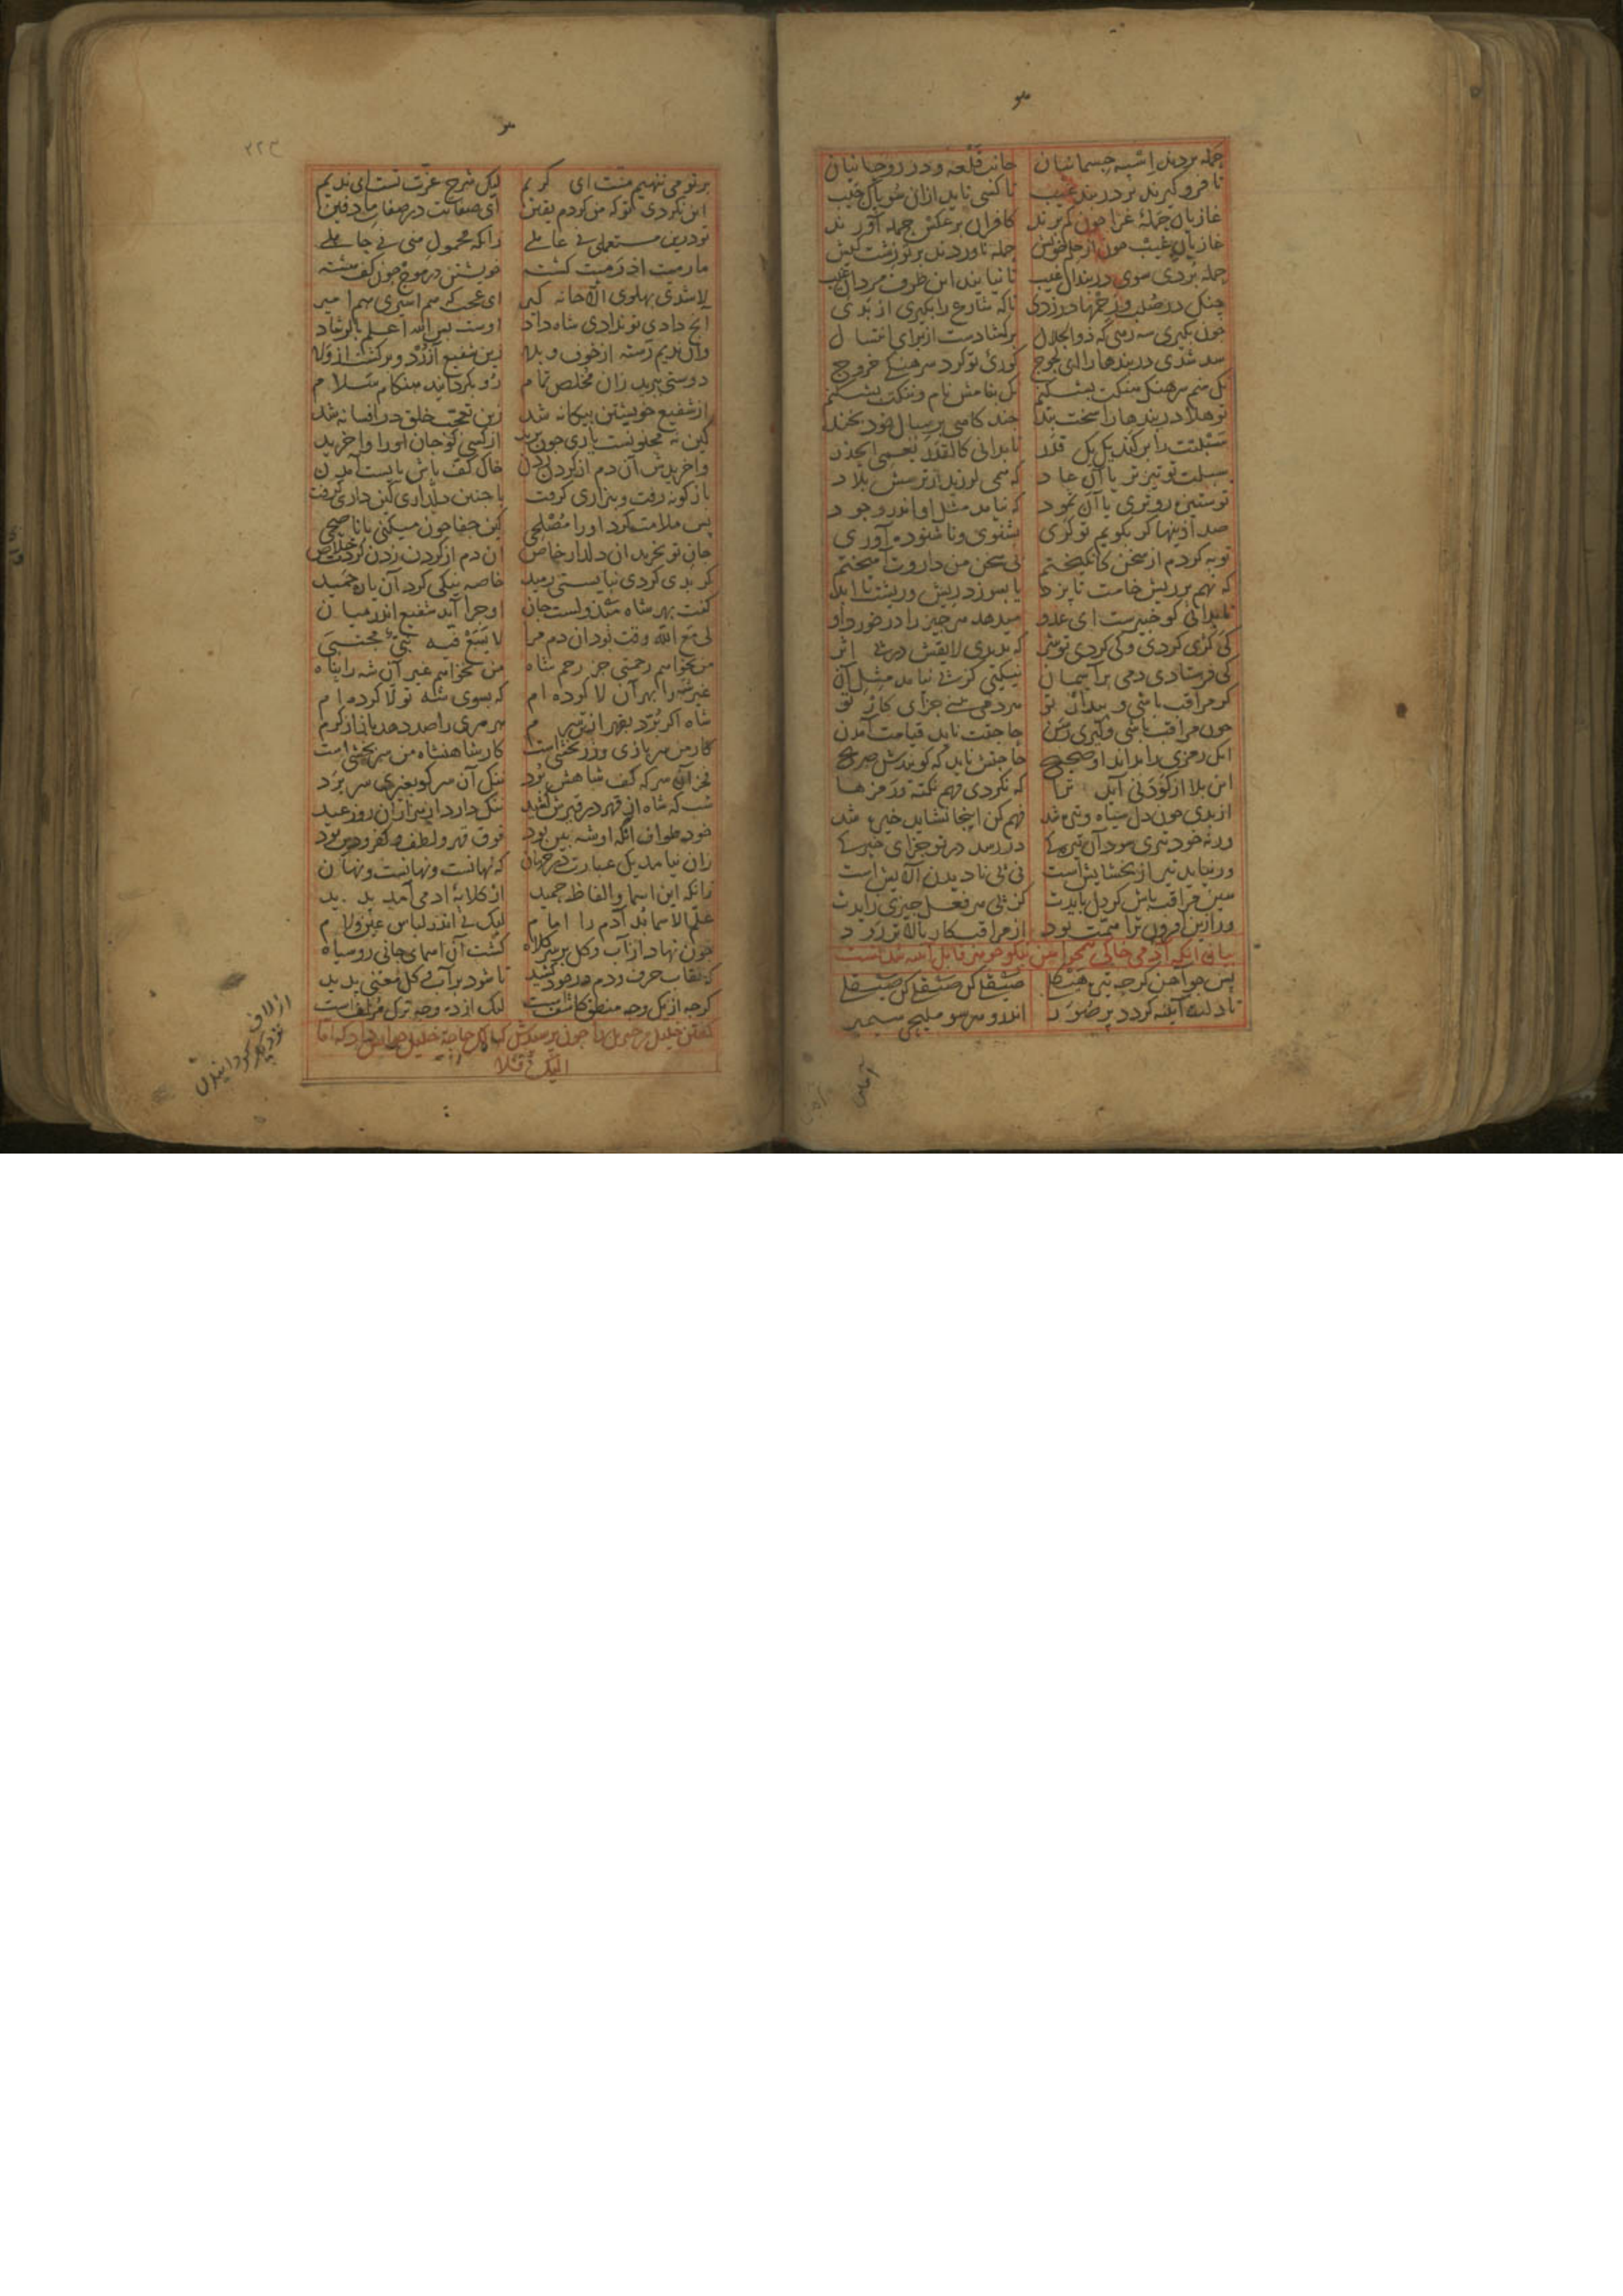 حمله بردند اسپه جسمانیان جانب قلعه و دز روحانیان
تا فرو گیرند بر دربند غیب تا کسی ناید ازان سو پاک جیب
غازیان حملهٔ غزا چون کم برند کافران برعکس حمله آورند
غازیان غیب چون از حلم خویش حمله ناوردند بر تو زشت کیش
حمله بردی سوی دربندان غیب تا نیایند این طرف مردان غیب
چنک در صلب و رحمها در زدی تا که شارع را بکیری از بدی
چون بکیری سه رهی که ذوالجلال برکشادست از برای انتسال
سد شدی دربندها را ای لجوج کوری تو کرد سرهنکی خروج
نک منم سرهنک هنکت بشکنم نک بنامش نام و ننکت بشکنم
تو هلا دربندها را سخت بند چند کاهی بر سبال خود بخند
سبلتت را برکند یک یک قدر تا بدانی کالقدر یعمی الحذر
سبلت تو تیزتر یا آن عاد که همی لرزید از ترسش بلاد
تو ستیزه روتری یا آن ثمود که نیامد مثل او اندر وجود
صد ازینها کر بکویم تو کری بشنوی و ناشنوده آوری
توبه کردم از سخن کانکیختم بی سخن من داروت آمیختم
که نهم بر ریش خامت تا پزد یا بسوزد ریش و ریشت تا ابد
تا بدانی کو خبیرست ای عدو میدهد هر چیز را درخورد او
کی کژی کردی و کی کردی تو شر که ندیدی لایقش در پی اثر
کی فرستادی دمی بر آسمان نیکیی کز پی نیامد مثل آن
کر مراقب باشی و بیدار تو هر دمی بینی جزای کار تو
چون مراقب باشی و کیری رسن حاجتت ناید قیامت آمدن
آنک رمزی را بداند او صحیح حاجتش ناید که کویندش صریح
این بلا از کودنی آید ترا که نکردی فهم نکته و رمزها
از بدی چون دل سیاه و تیره شد فهم کن اینجا نشاید خیره شد
ورنه خود تیری شود آن تیرکی در رسد در تو جزای خیرکی
ور نیاید تیر از بخشایش است نی پی نادیدن آلایش است
هین مراقب باش کر دل بایدت کز پی هر فعل چیزی زایدت
ور ازین افزون ترا همت بود از مراقب کار بالاتر رود
بیان آنکه آدمی خاکی همچو آهن نیکو جوهر قابل آینه شدنست
پس چو آهن کرچه تیره هیکلی صیقلی کن صیقلی کن صیقلی
تا دلت آینه کردد پر صور اندرو هر سو ملیحی سیمبر
۲۲۴
بر تو می ننهیم منت ای کریم لیک شرح عزت تست ای ندیم
این نکردی تو که من کردم یقین ای صفاتت در صفات ما دفین
تو درین مستعملی نی عاملی زانکه محمول منی نی حاملی
ما رمیت اذ رمیت کشتهٔ خویشتن در موج چون کف هشتهٔ
لا شدی پهلوی الا خانه کیر ای عجب که هم اسیری هم امیر
آنچ دادی تو ندادی شاه داد اوست بس الله اعلم بالرشاد
وان ندیم رسته از خوف و بلا زین شفیع آزرد و برکشت از ولا
دوستی ببرید زان مخلص تمام رو بکرداند هنکام سلام
از شفیع خویشتن بیکانه شد زین تعجب خلق در افسانه شد
کین نه مجنونست یاری چون برید از کسی کو جان او را وا خرید
وا خریدش آن دم از کردن زدن خاک کف پاش بایست آمدن
بازکونه رفت و بیزاری کرفت با چنین دلداری کین داری کرفت
پس ملامت کرد او را مصلحی کین جفا چون میکنی با ناصحی
جان تو بخرید آن دلدار خاص آن دم از کردن زدن کردت خلاص
کر بدی کردی نبایستی رمید خاصه نیکی کرد آن یار حمید
کفت بهر شاه مبذولست جان او چرا آید شفیع اندر میان
لی مع الله وقت بود آن دم مرا لا یسع فیه نبی مجتبی
من نخواهم رحمتی جز رحم شاه من نخواهم غیر آن شه را پناه
غیر شه را بهر آن لا کرده ام که بسوی شه تولا کرده ام
شاه اکر برد بقهر از تن سرم هر سری را صد دهد باز از کرم
کار من سربازی و زر بخشی است کار شاهنشاه من سربخشی است
فخر آن سر که کف شاهش برد ننک آن سر کو بغیری سر برد
شب که شاه از قهر در قیرش کشید ننک دارد از هزاران روز عید
خود طواف آنکه او شه بین بود فوق قهر و لطف و کفر و دین بود
زان نیامد یک عبارت در جهان که نهانست و نهانست و نهان
زانکه این اسما و الفاظ حمید از کلابهٔ آدمی آمد پدید
علم الاسما بد آدم را امام لیک نی اندر لباس عین و لام
چون نهاد از آب و کل بر سر کلاه کشت آن اسمای جانی رو سیاه
که نقاب حرف و دم در خود کشید تا شود بر آب و کل معنی پدید
کرچه از یک وجه منطق کاشف است لیک از ده وجه ترک مکنف است
کفتن خلیل جبرئیل را چون پرسیدش که الک حاجة خلیل جواب داد که اما
الیک فلا